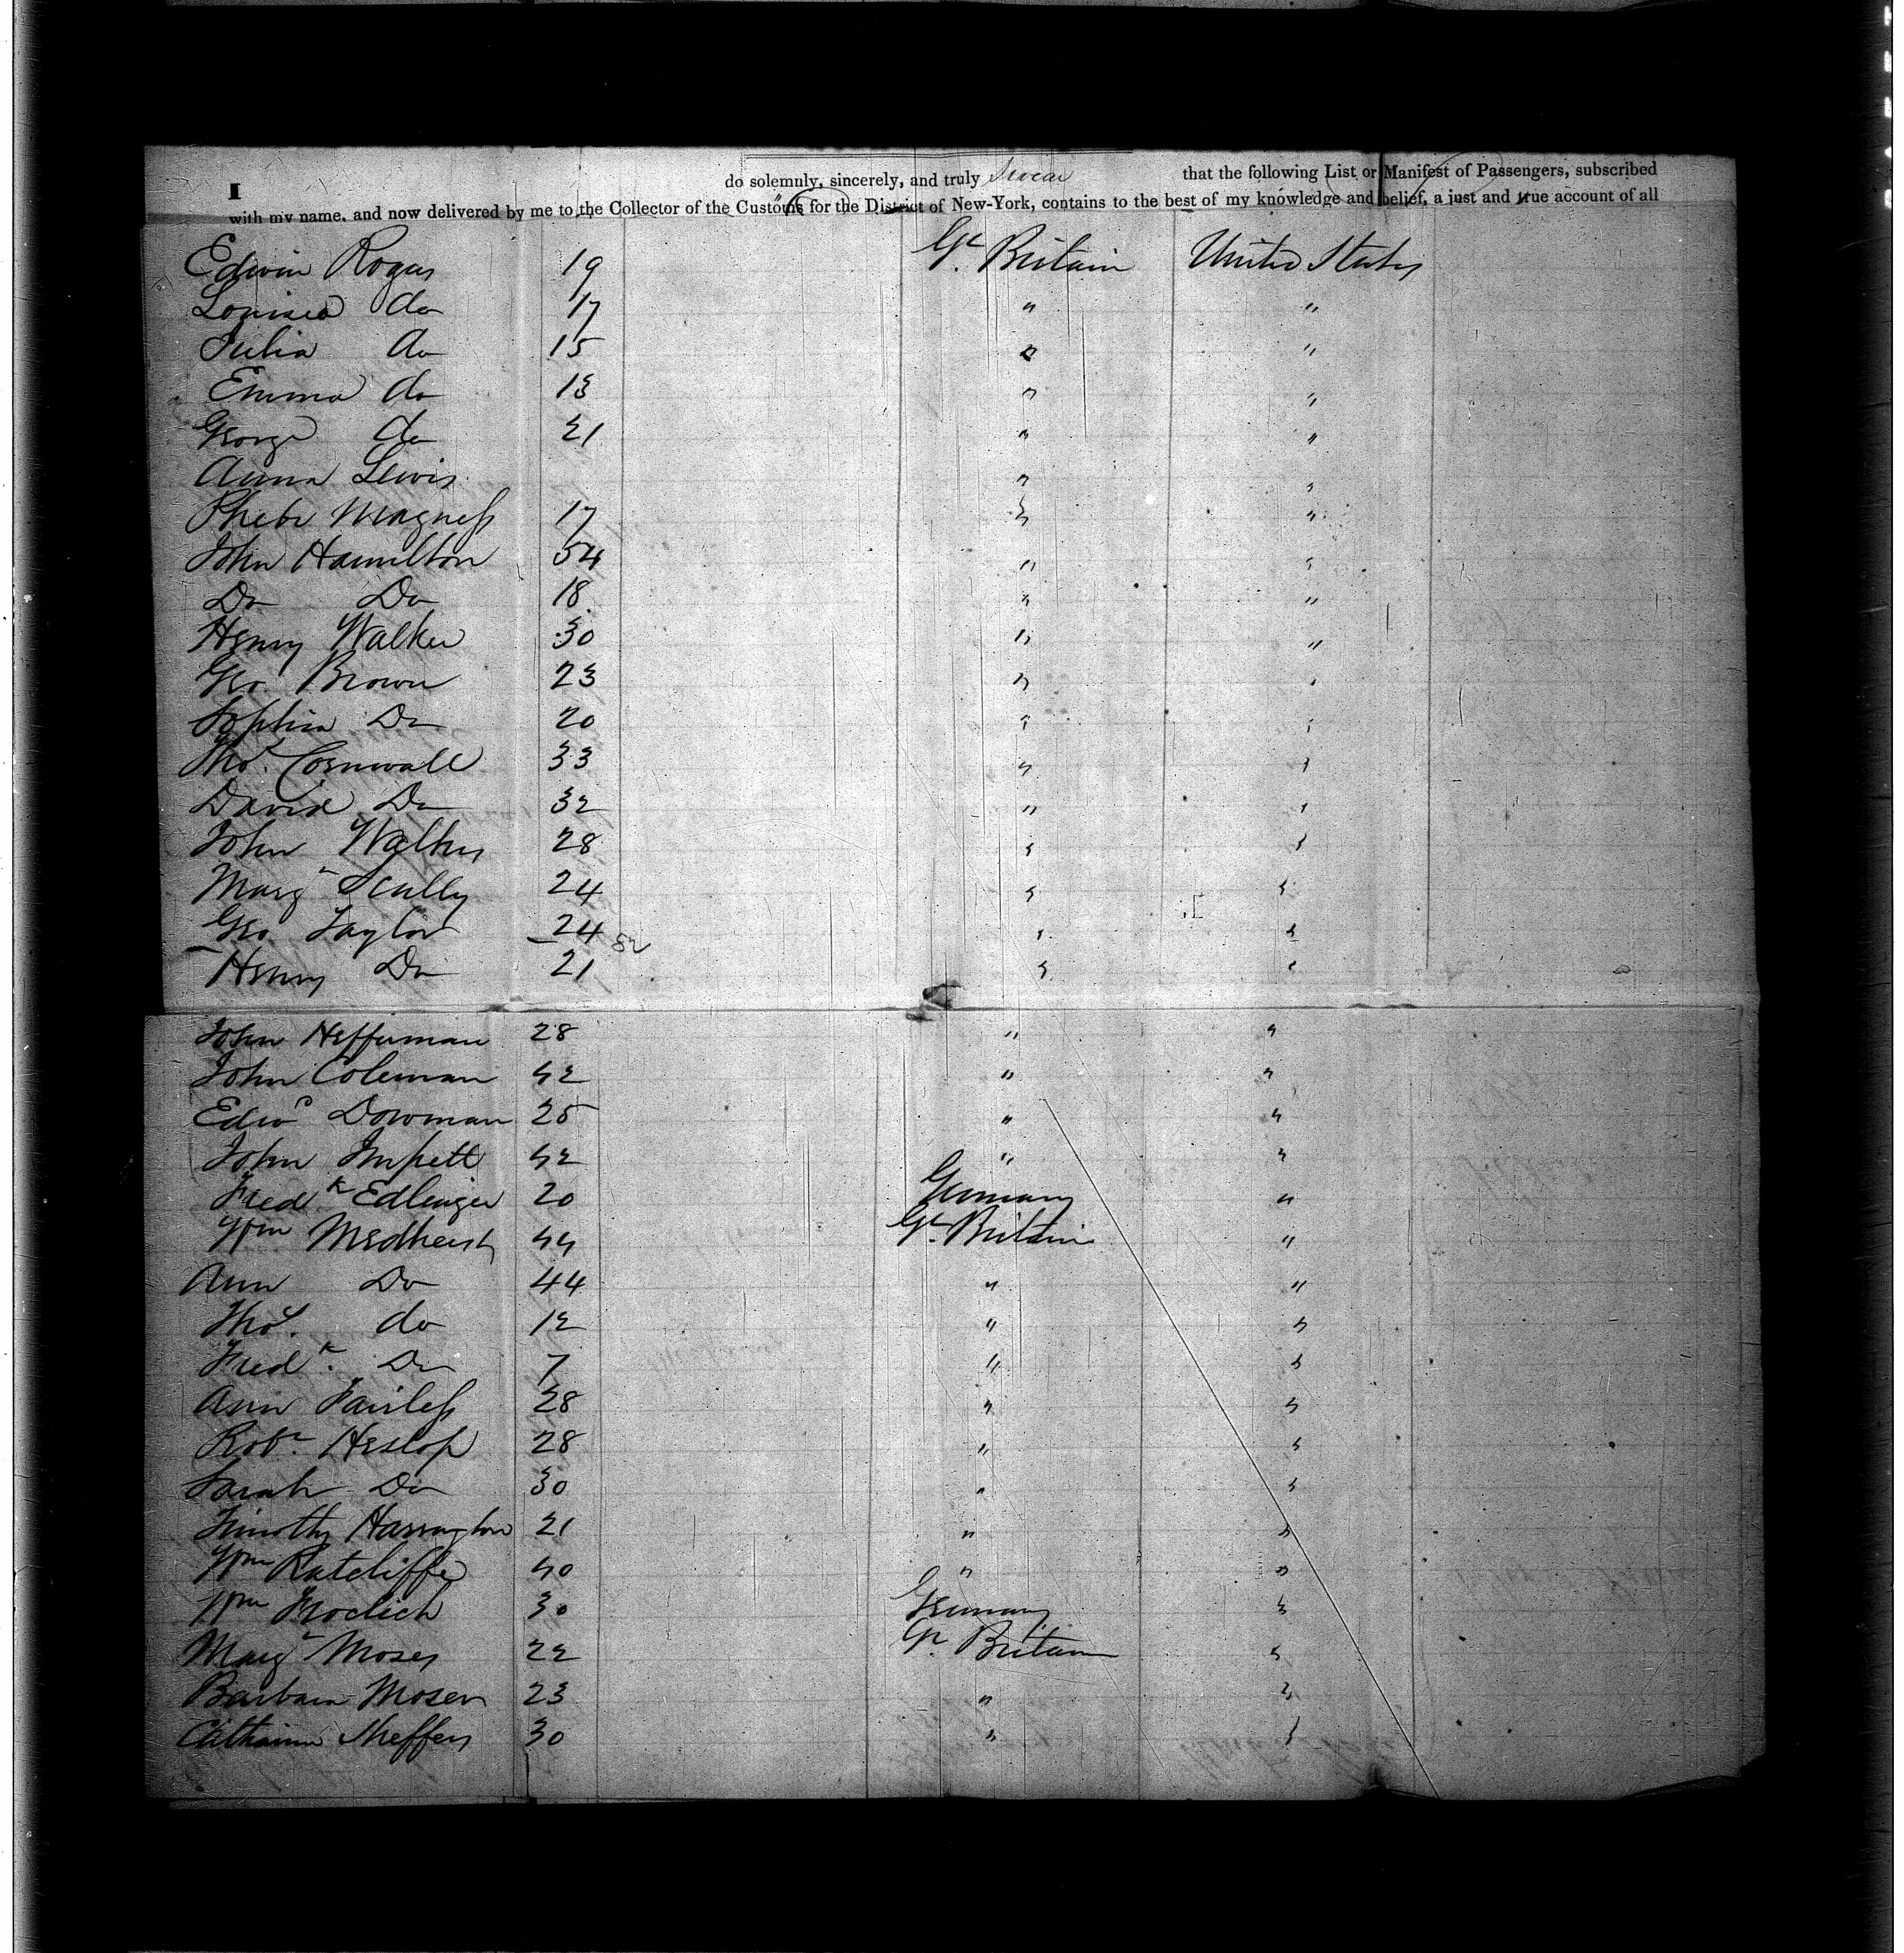 I do solemnly, sincerely, and truly swear that the following List or Manifest of Passengers, subscribed
with my name, and now delivered by me to the Collector of the Customs for the District of New-York, contains to the best of my knowledge and belief, a just and true account of all
Edwin Rogers 19 Gt. Britain United States
Louisa do 17 " "
Julia do 15 " "
Emma do 13 " "
George do 21 " "
Anna Lewis " "
Phebe Magness 17 " "
John Hamilton 54 " "
Do Do 18 " "
Henry Walker 30 " "
Geo Brown 23 " "
Sophia Do 20 " "
Thos. Cornwall 33 " "
David Do 32 " "
John Walker 28 " "
Margt Scully 24 " "
Geo Taylor 24 " "
Henry Do 21 " "
John Heffernan 28 " "
John Coleman 42 " "
Edwd Dowman 25 " "
John Impett 42 " "
Fredk Edlinger 20 Germany "
Wm Medhurst 44 Gt. Britain "
Ann Do 44 " "
Thos. do 12 " "
Fredk. Do 7 " "
Ann Fairless 28 " "
Robt. Heslop 28 " "
Sarah Do 30 " "
Timothy Harrington 21 " "
Wm Ratcliffe 40 " "
Wm 30 Germany "
Margt Moses 22 Gt. Britain "
Barbara Moser 23 " "
30 " "